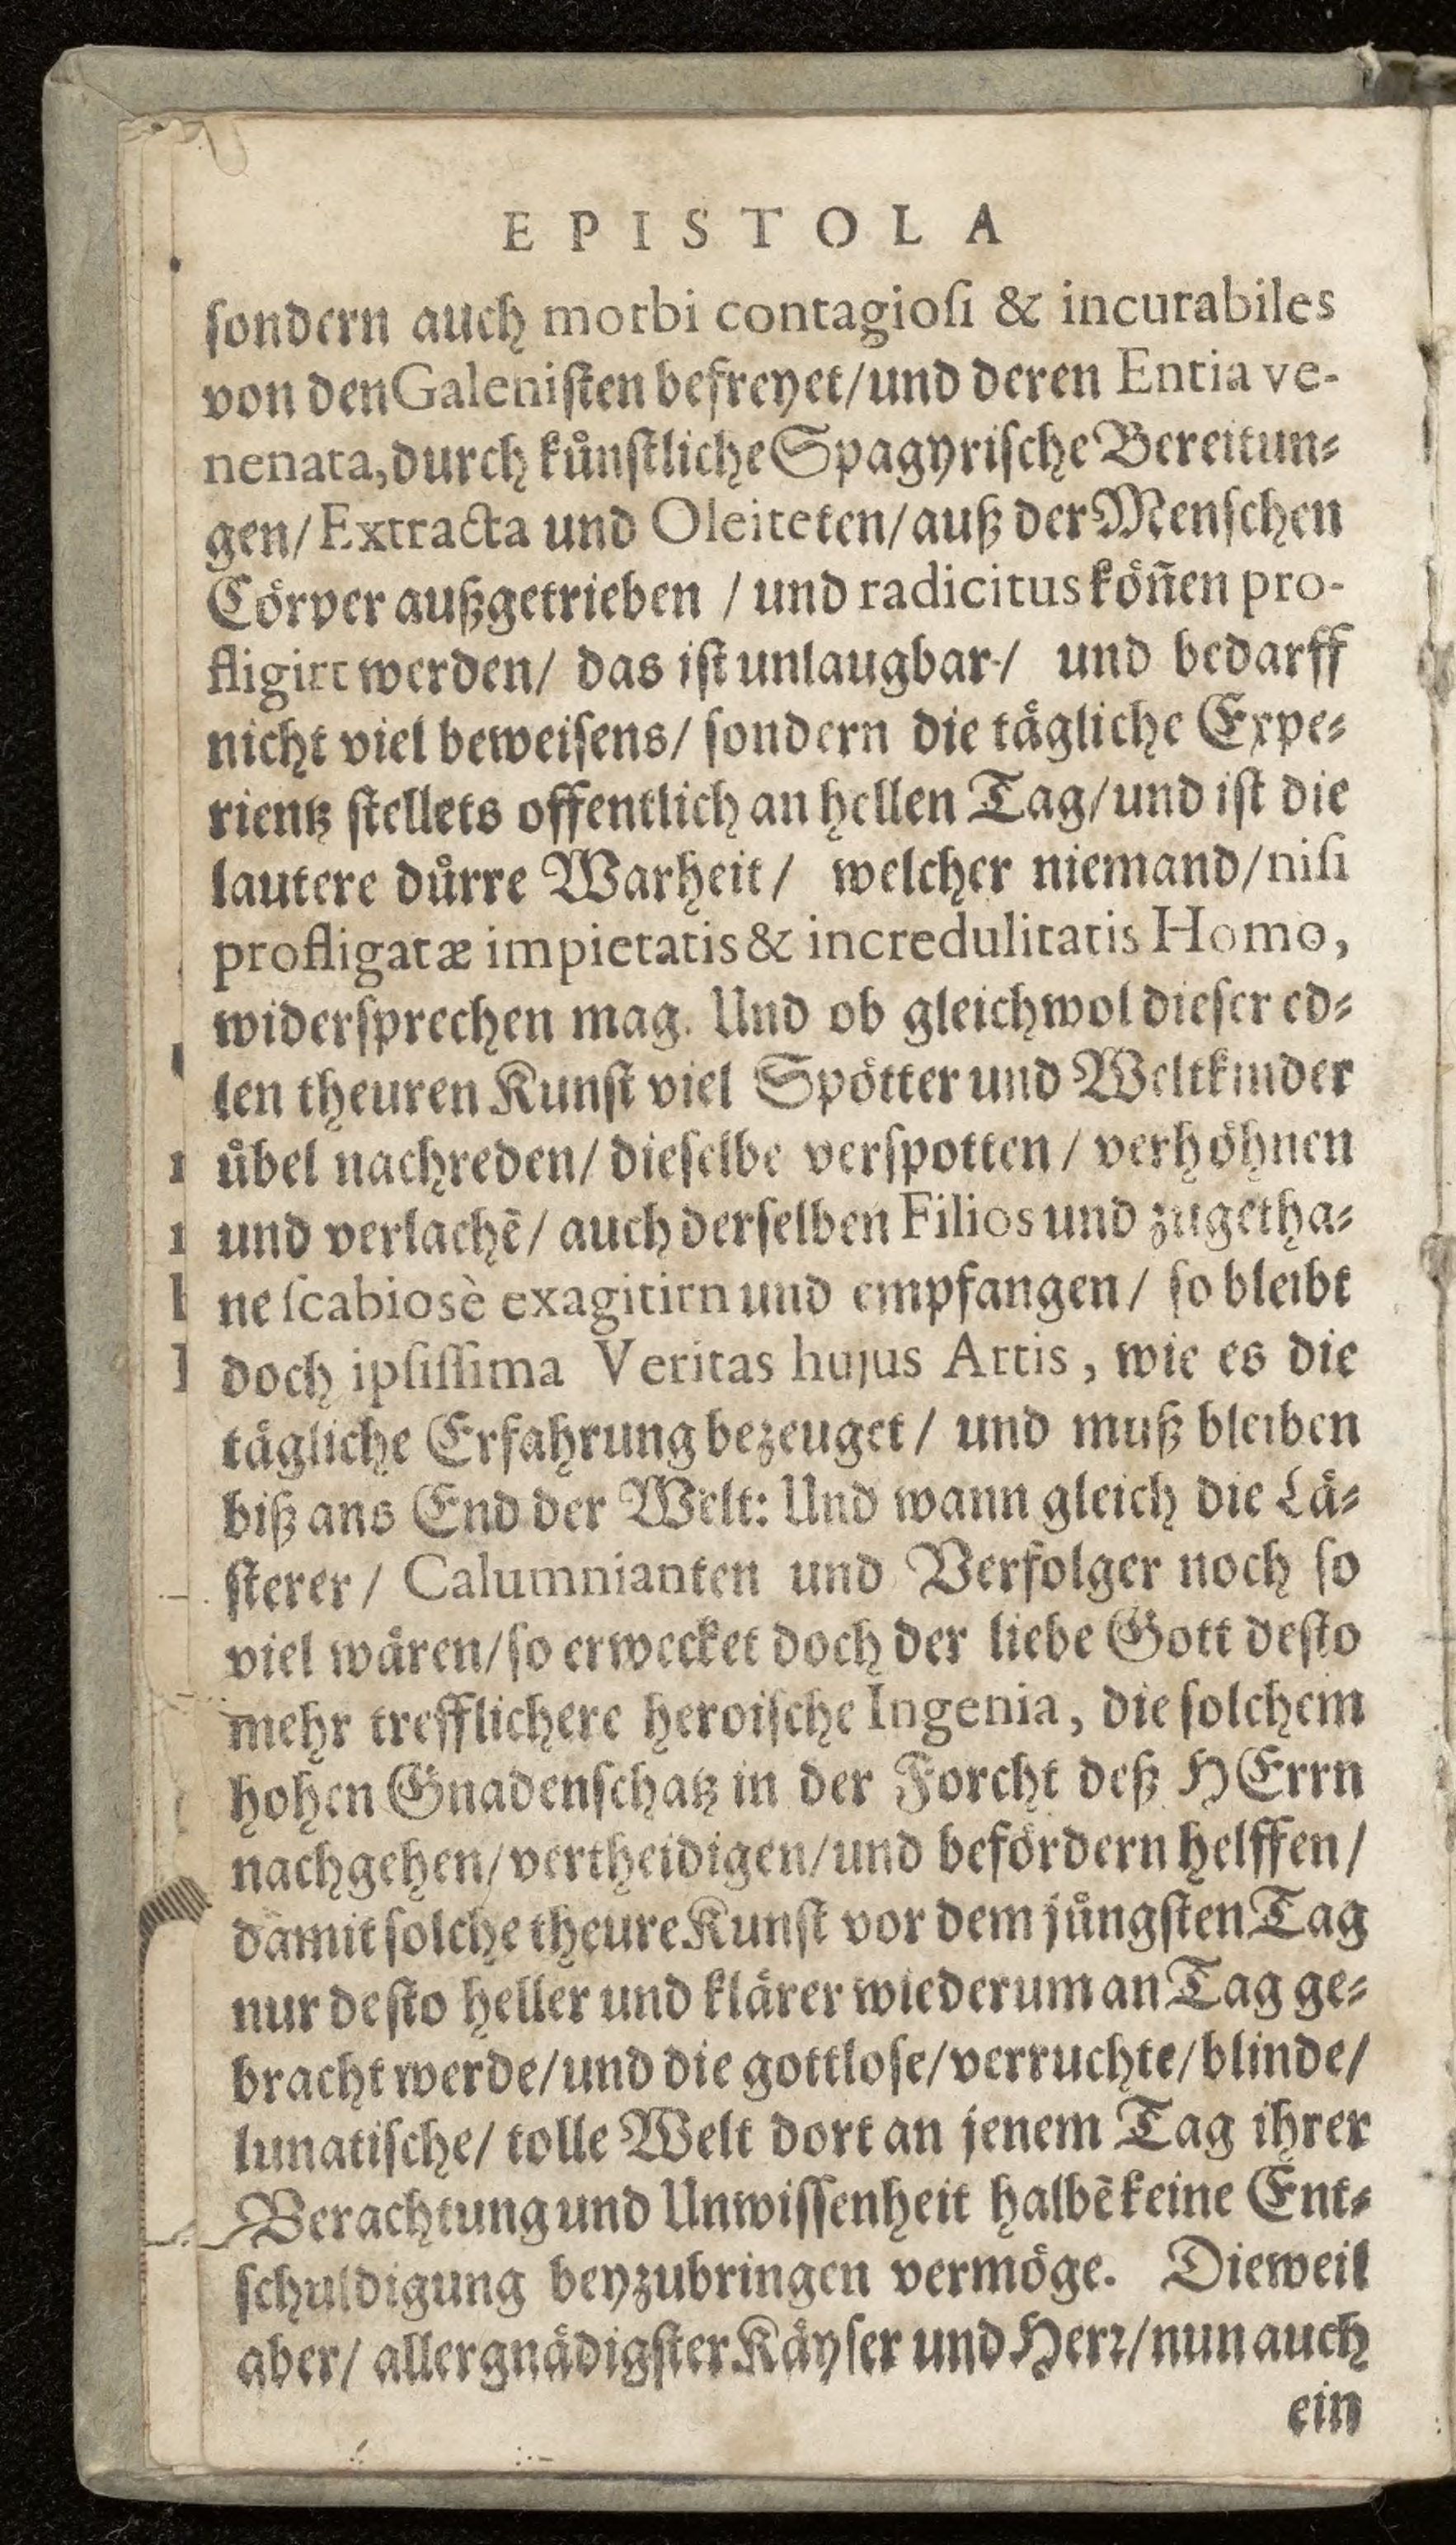 EPISTOLA
ſondern auch morbi contagioſi & incurabiles
von den Galeniſten befreyet/ und deren Entia ve-
nenata, durch kuͤnſtliche Spagyriſche Bereitun⸗
gen/ Extracta und Oleiteten/ auß der Menſchen
Coͤrper außgetrieben / und radicitus koͤñen pro-
fligirt werden/ das iſt unlaugbar/ und bedarff
nicht viel beweiſens/ ſondern die taͤgliche Expe⸗
rientz ſtellets offentlich an hellen Tag/ und iſt die
lautere duͤrre Warheit/ welcher niemand/ niſi
profligatæ impietatis & incredulitatis Homo,
widerſprechen mag. Und ob gleichwol dieſer ed⸗
len theuren Kunſt viel Spoͤtter und Weltkinder
uͤbel nachreden/ dieſelbe verſpotten/ verhoͤhnen
und verlachē/ auch derſelben Filios und zugetha⸗
ne ſcabiosè exagitirn und empfangen/ ſo bleibt
doch ipſiſſima Veritas hujus Artis, wie es die
taͤgliche Erfahrung bezeuget/ und muß bleiben
biß ans End der Welt: Und wann gleich die Laͤ⸗
ſterer/ Calumnianten und Verfolger noch ſo
viel waͤren/ ſo erwecket doch der liebe Gott deſto
mehr trefflichere heroiſche Ingenia, die ſolchem
hohen Gnadenſchatz in der Forcht deß HErrn
nachgehen/ vertheidigen/ und befoͤrdern helffen/
damit ſolche theure Kunſt vor dem juͤngſten Tag
nur deſto heller und klaͤrer wiederum an Tag ge⸗
bracht werde/ und die gottloſe/ verruchte/ blinde/
lunatiſche/ tolle Welt dort an jenem Tag ihrer
Verachtung und Unwiſſenheit halbē keine Ent⸗
ſchuldigung beyzubringen vermoͤge. Dieweil
aber/ allergnaͤdigſter Kaͤyſer und Herꝛ/ nun auch
ein